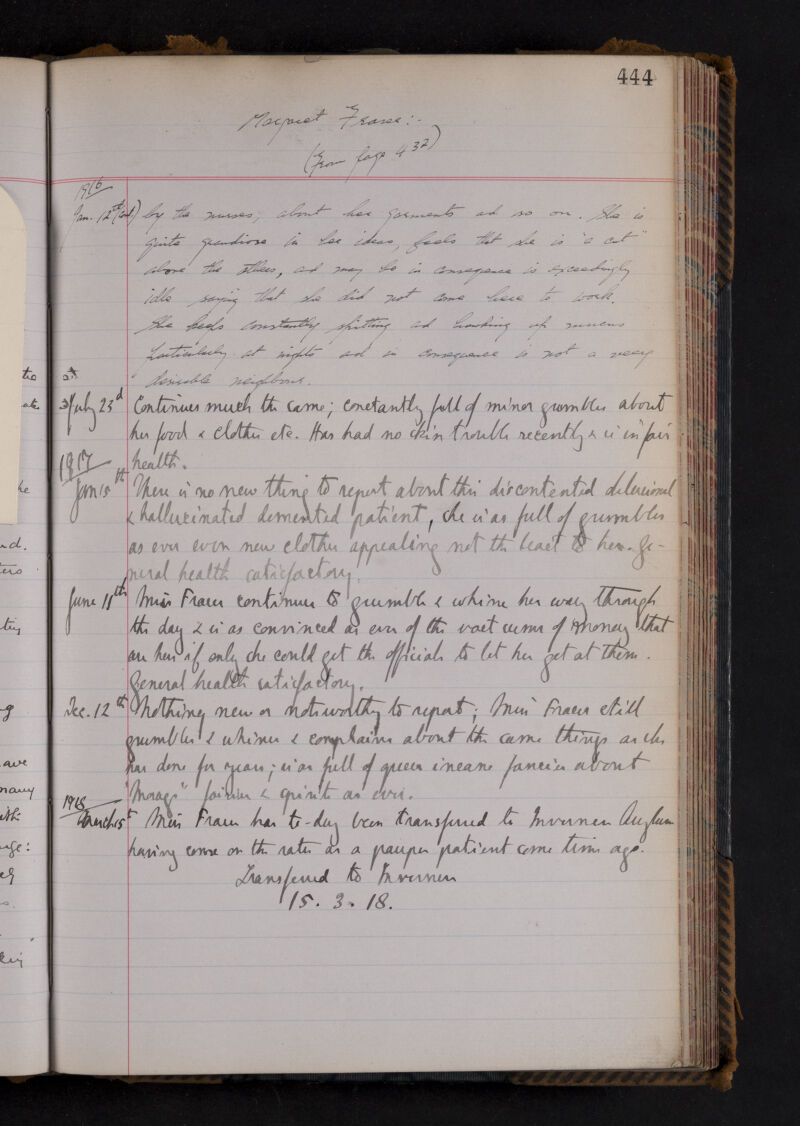 444
Margaret Fraser:-
(From page 432)
1916
Jan. 12th (contd) by the nurses, about her garments ad so on. She is
quite grandiose in her ideas, feels that she is "a cut"
above the others, ad may be in consequence is exceedingly
idle saying that she did not come here to work.
She keeps constantly spitting ad hawking up mucus
particularly at nights ad in consequence is not a very
desirable neighbour.
July 23d Continues much the same; constantly full of minor grumbles about
her food & clothes etc. Has had no skin trouble recently & is in fair
health.
1917
Jan 15th There is no new thing to report about this discontented delusional
& hallucinated demented patient, she is as full of grumbles
as ever even new clothes appealing not the least to her. Ge-
neral health satisfactory.
June 11th Miss Fraser continues to grumble & whine her way through
the day & is as convinced as ever of the vast sums of money that
are hers if only she could get the officials to let her get at them.
General health satisfactory.
Dec. 12th Nothing new or noteworthy to report; Miss Fraser still
grumbles & whines & complains about the same things as she
has done for years; is as full of queer insane fancies about
"Morags" fairies & spirits as ever.
1918
March 15t Miss Fraser has to-day been transferred to Inverness Asylum
having come on the rates as a pauper patient some time ago.
Transferred to Inverness
15. 3. 18.